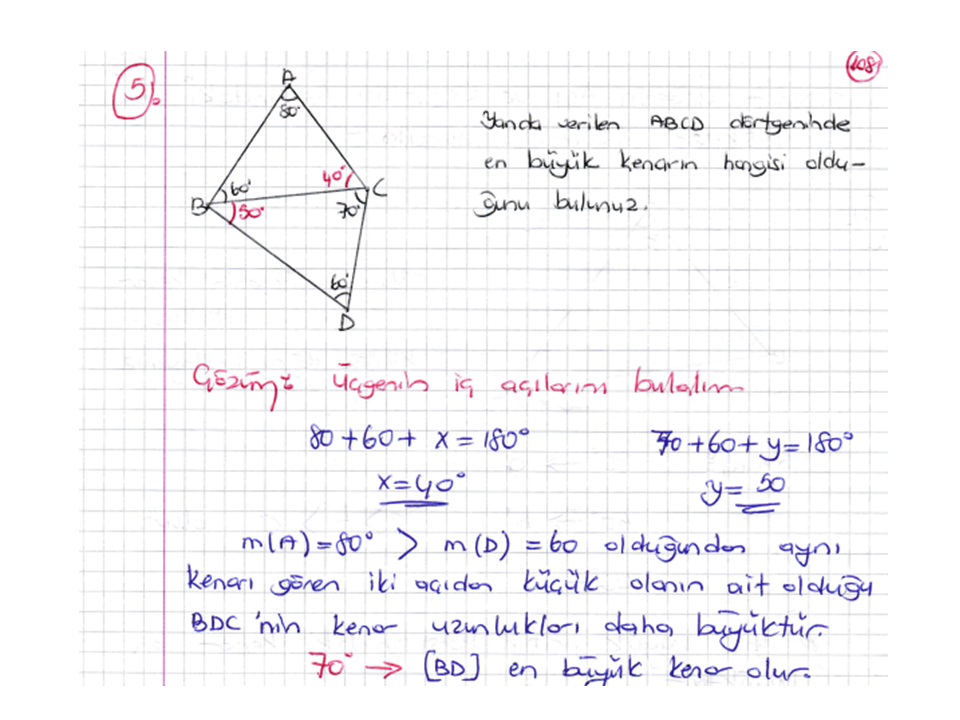 108
5.
A
80°
Yanda verilen ABCD dörtgeninde
en büyük kenarın hangisi oldu-
ğunu bulunuz.
60° 40° C
B 50° 70°
60°
D
Çözüm: Üçgenin iç açılarını bulalım
80+60+ x=180° 70+60+y=180°
x=40° y=50
m(A)=80° > m(D)=60 olduğundan aynı
kenarı gören iki açıdan küçük olanın ait olduğu
BDC 'nin kenar uzunlukları daha büyüktür.
70° → [BD] en büyük kenar olur.